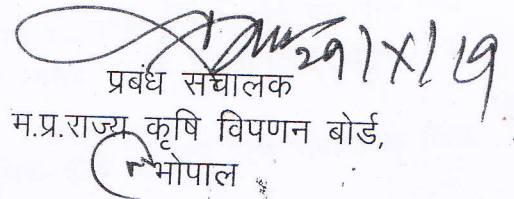 29/X/19
प्रबंध संचालक
म.प्र.राज्य कृषि विपणन बोर्ड,
भोपाल